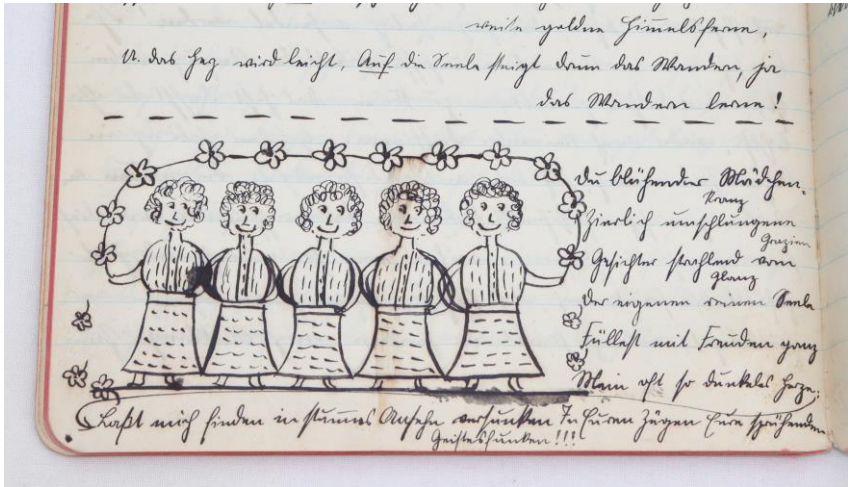 weite goldne Himmelsferne,
U. das Herz wird leicht, Auf die Seele steigt drum das Wandern, ja
das Wandern lerne!
Du blühender Mädchen-
Kranz
Zierlich umschlungene
Grazien
Gesichter strahlend vom
Glanz
Der eigenen reinen Seele
Füllest mit Freuden ganz
Mein oft so dunkeles Herze:
Laßt mich finden in stummes Ansehn versunken In Euren Zügen Eure sprühenden
Geistesfunken!!!